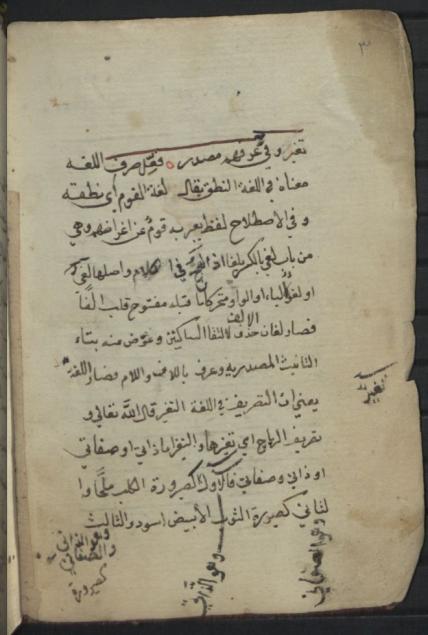 ٣
تغير وفي عرفهم مصدر فعل صرف اللغه
معناه في اللغة النطق يقال لغة القوم اي نطقه
وفي الاصطلاح لفظ يعبر به قوم عن اغراضهم وهي
من باب لغي بالكسر يلغا اذا في الكلام واصلها لغي
او لغو الياء او الواو متحركان قبله مفتوح قلب الفا
فصار لغان حذف الالف لالتقا الساكنين وعوض منه بتاء
التانيث المصدريه وعرف باللاف واللام فصار اللغة
يعني ان التصريف في اللغة التغير قال الله تعالى و
تصريف الرياح اي تغيرها والتغير اما ذاتي او صفاتي
او ذاتي وصفاتي فالاول كصيرورة الكلب ملحا وا
لثاني كصيرورة الثوب الابيض اسود والثالث
تغيير
وهو الذاتي
والصفاتي
كصيرورة
وهو الذاتي
وهو الصفاتي